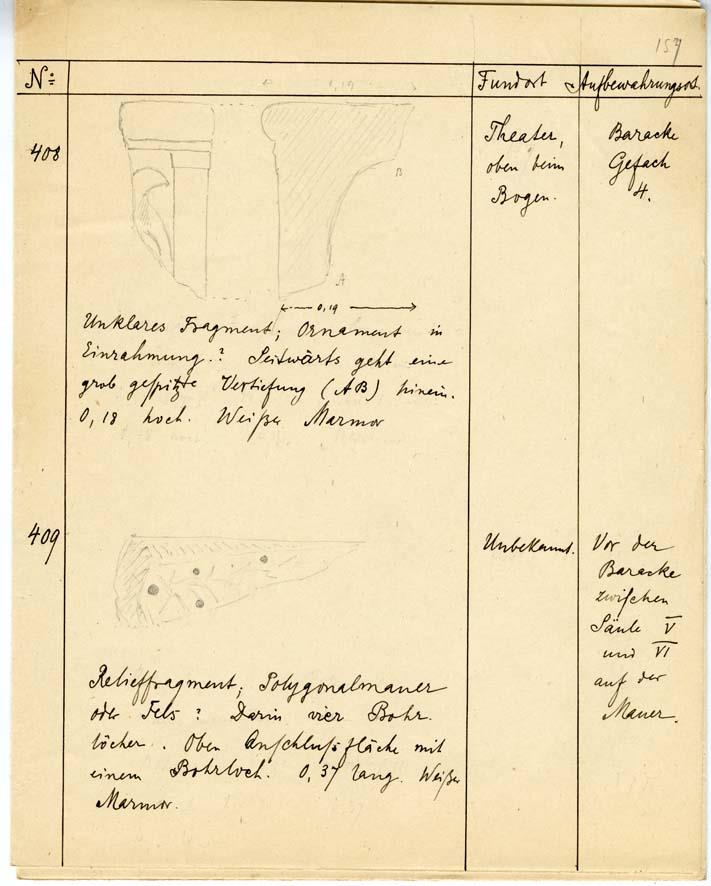 157
N:
Fundort
Aufbewahrungsort.
408
0,19
B
A
0,19
Theater,
oben beim
Bogen.
Baracke
Gefach
4.
Unklares Fragment; Ornament in
Einrahmung.? Seitwärts geht eine
grob gespitzte Vertiefung (AB) hinein.
0,18 hoch. Weißer Marmor
409
Unbekannt.
Vor der
Baracke
zwischen
Säule V
und VI
auf der
Mauer.
Relieffragment; Polygonalmauer
oder Fels? Darin vier Bohr-
löcher. Oben Anschlußfläche mit
einem Bohrloch. 0,37 lang. Weißer
Marmor.